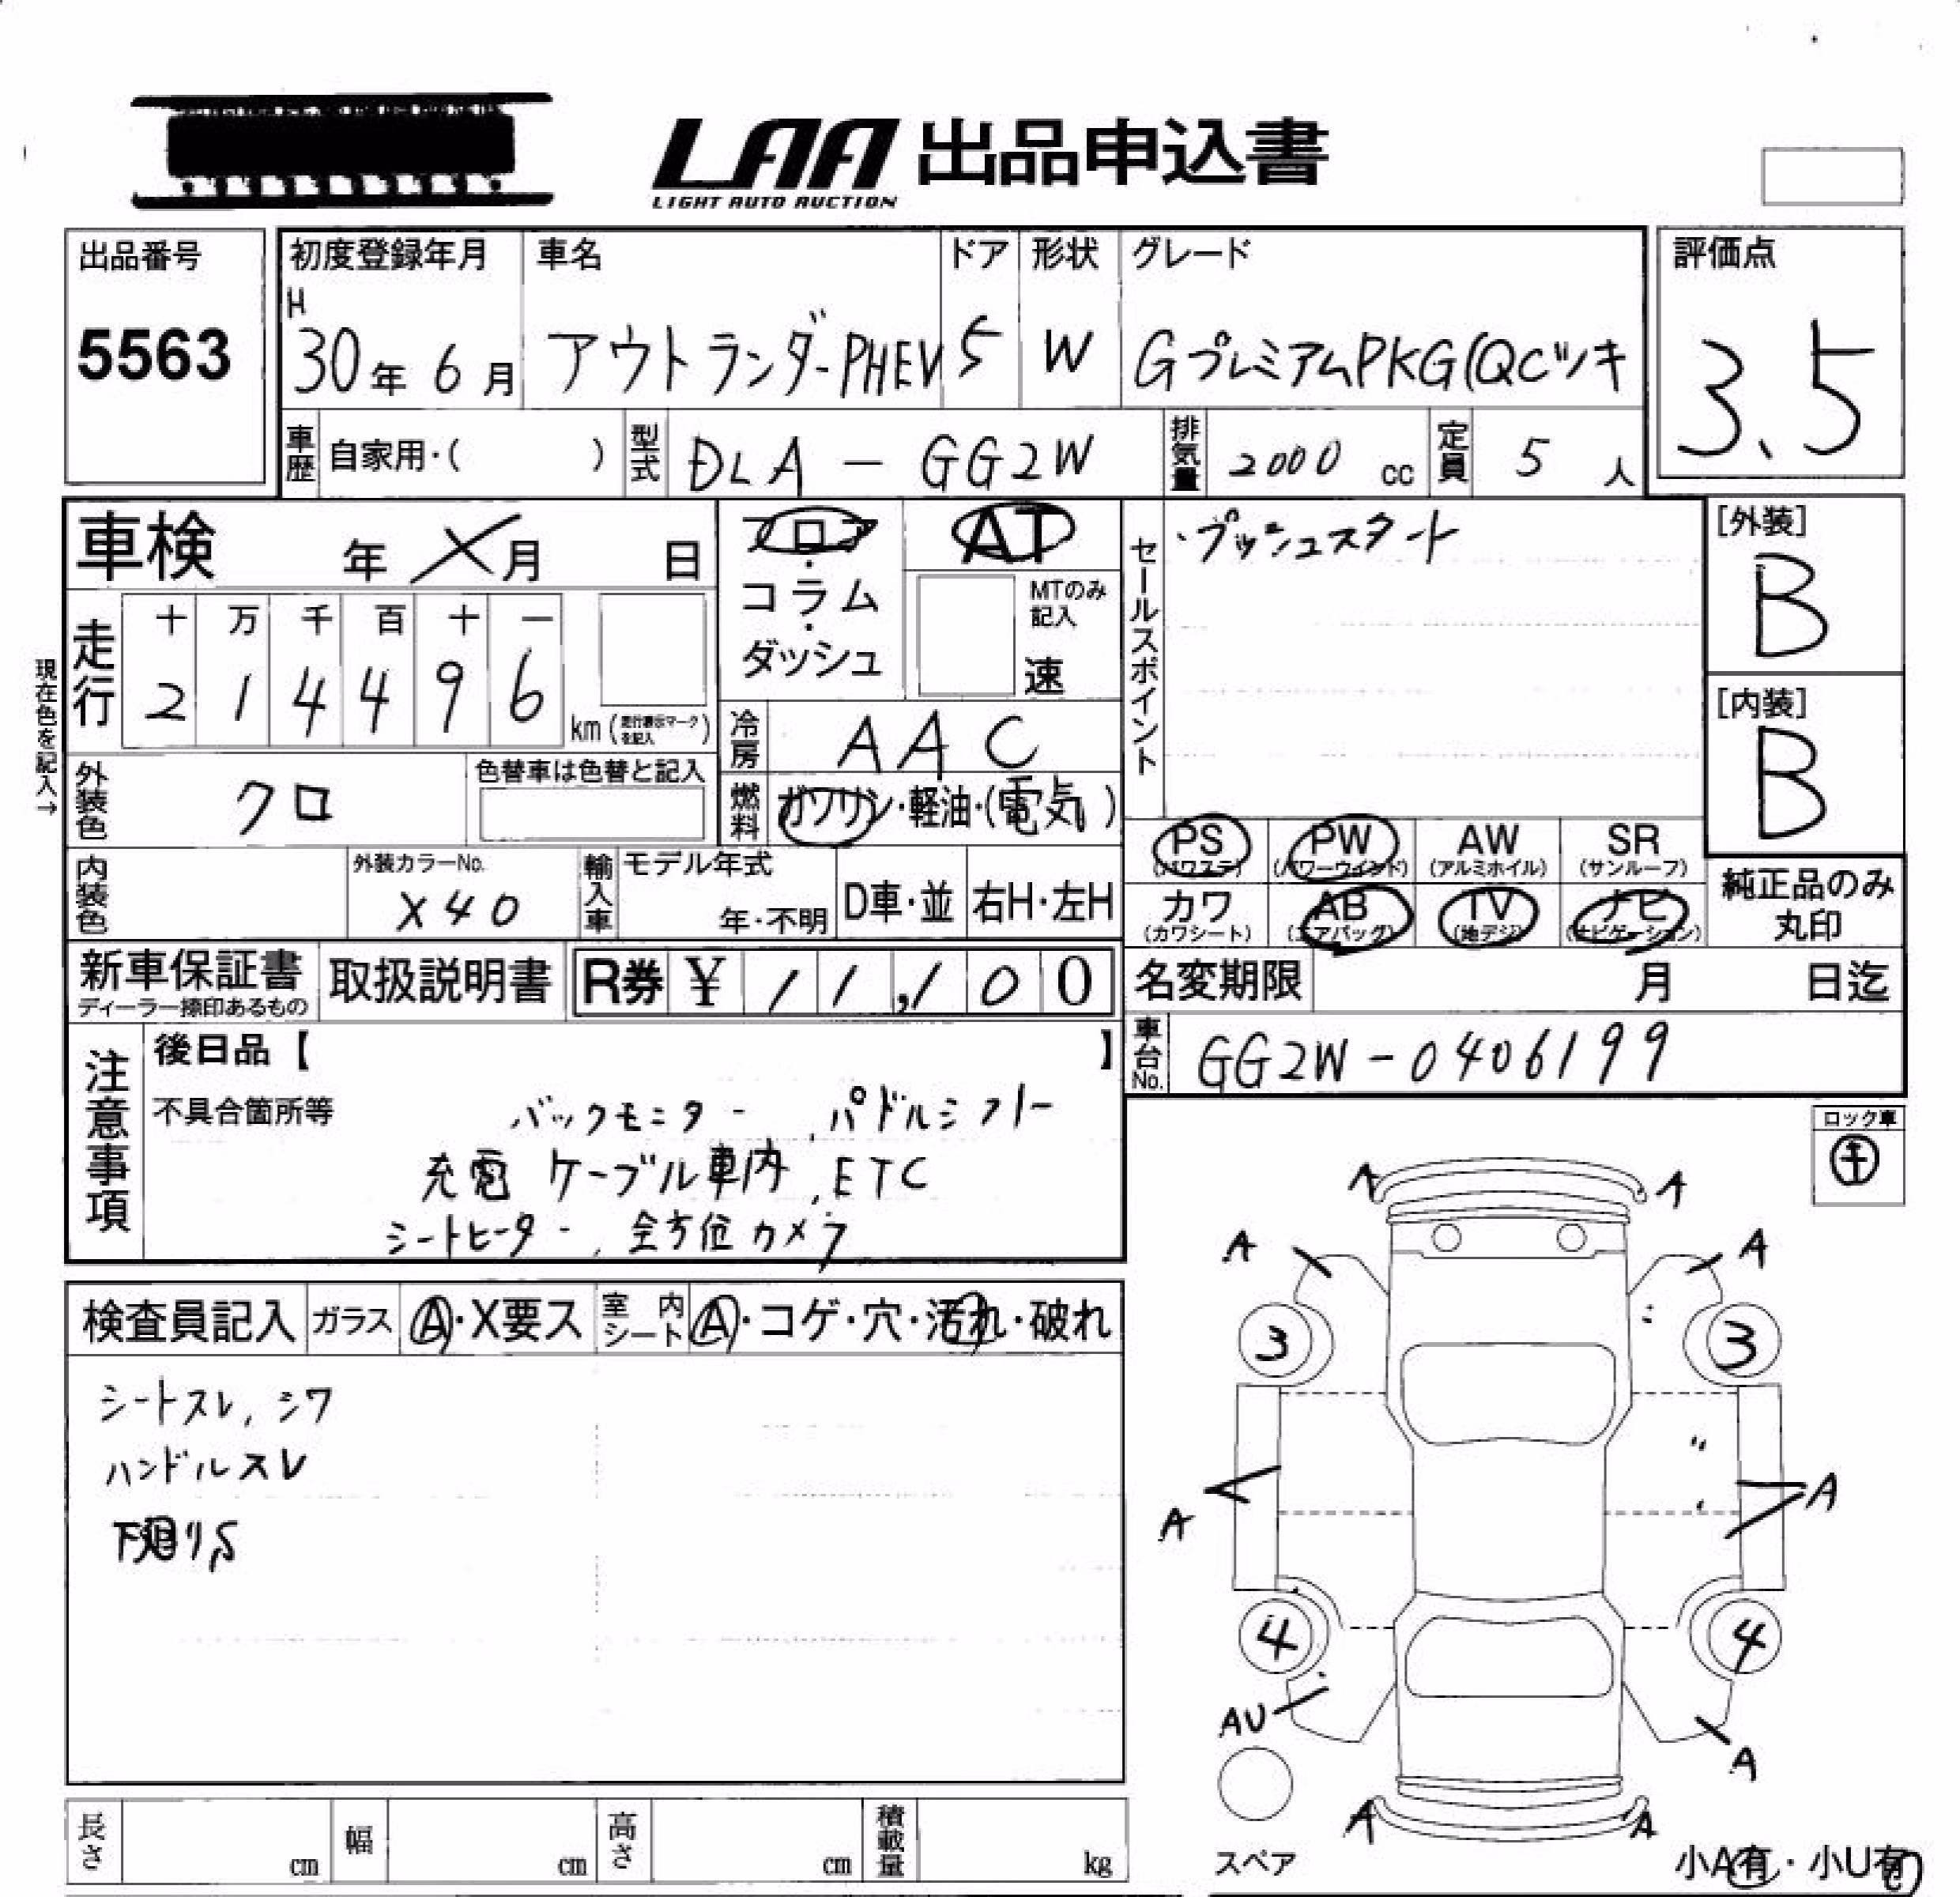 LAA 出品申込書
LIGHT AUTO AUCTION
出品番号
5563
初度登録年月
H
30年 6月
車名
アウトランダーPHEV
ドア
5
形状
W
グレード
GプレミアムPKG(QCツキ
評価点
3.5
車歴 自家用・( )
型式 DLA - GG2W
排気量 2000 cc
定員 5 人
車検 年 月 日
フロア
・
コラム
・
ダッシュ
AT
MTのみ
記入
速
セールスポイント
・プッシュスタート
[外装]
B
[内装]
B
現在色を記入→
走行
十 万 千 百 十 一
2 1 4 4 9 6
km (走行表示マークを記入)
冷房 AAC
外装色 クロ
色替車は色替と記入
燃料 ガソリン・軽油・(電気)
PS (パワステ)
PW (パワーウインド)
AW (アルミホイル)
SR (サンルーフ)
カワ (カワシート)
AB (エアバッグ)
TV (地デジ)
ナビ (ナビゲーション)
純正品のみ
丸印
内装色
外装カラーNo.
X40
輸入車
モデル年式
年・不明
D車・並
右H・左H
新車保証書
ディーラー捺印あるもの
取扱説明書
R券 ¥ 11,100
名変期限 月 日迄
車台No. GG2W-0406199
注意事項
後日品【 】
不具合箇所等
バックモニター , パドルシフトー
充電ケーブル車内 , ETC
シートヒーター , 全方位カメラ
ロック車
検査員記入
ガラス A・X要ス
室内シート A・コゲ・穴・汚れ・破れ
シートスレ, シワ
ハンドルスレ
下廻りS
A A
A A
3 3
A A
4 4
AU A
A A
スペア
小A有・小U有
長さ cm
幅 cm
高さ cm
積載量 kg